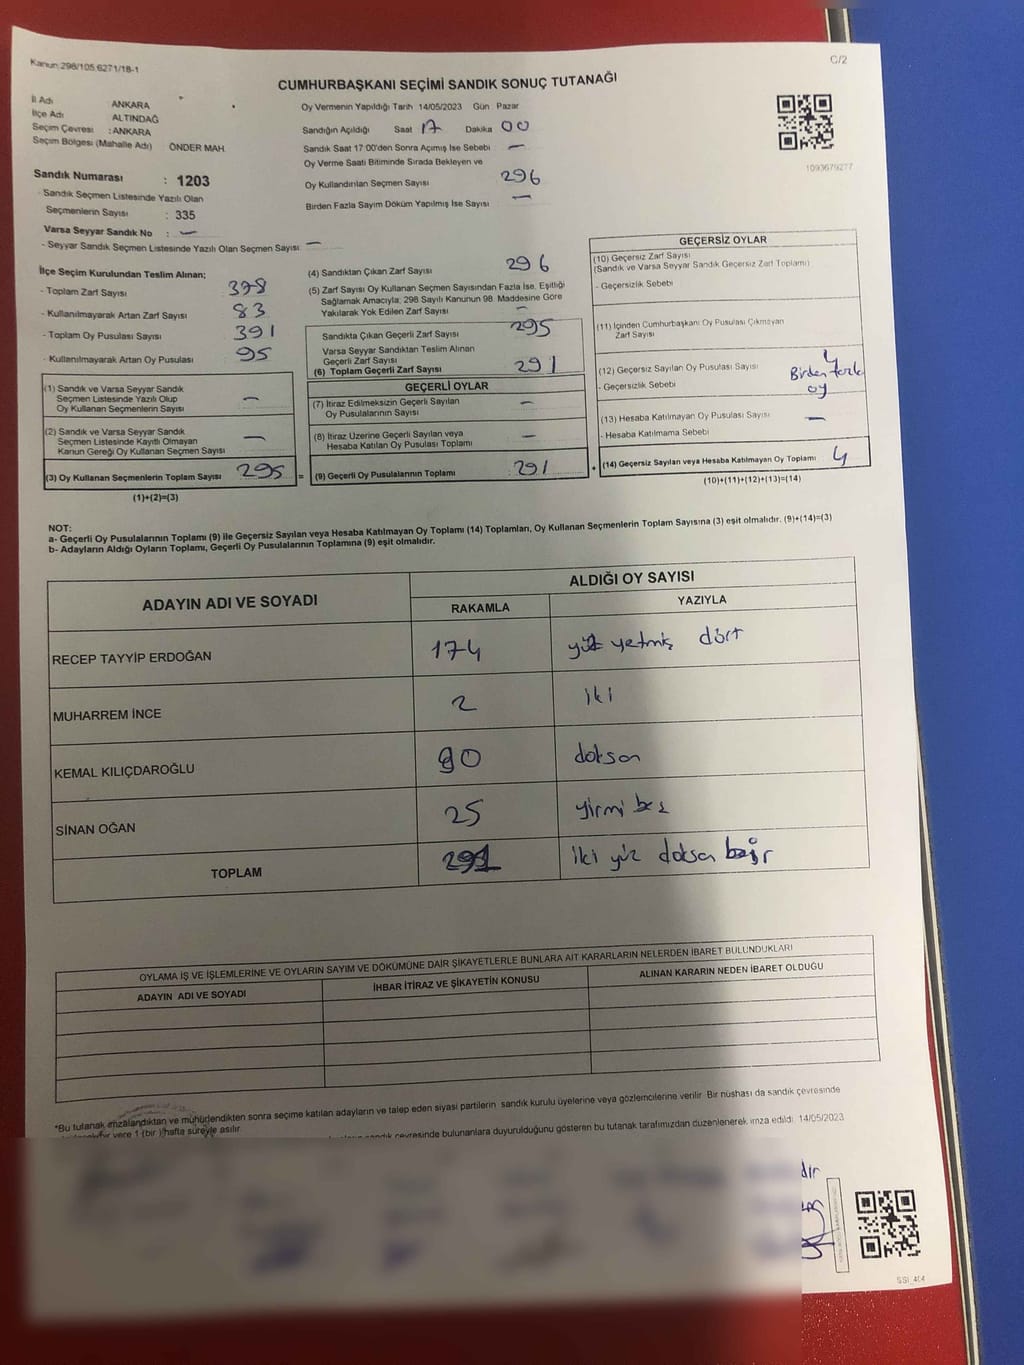 Kanun:298/105,6271/18-1
C/2
CUMHURBAŞKANI SEÇİMİ SANDIK SONUÇ TUTANAĞI
İl Adı ANKARA
İlçe Adı ALTINDAĞ
Seçim Çevresi : ANKARA
Seçim Bölgesi (Mahalle Adı) ÖNDER MAH.
Sandık Numarası : 1203
- Sandık Seçmen Listesinde Yazılı Olan
Seçmenlerin Sayısı : 335
Varsa Seyyar Sandık No : —
- Seyyar Sandık Seçmen Listesinde Yazılı Olan Seçmen Sayısı: —
Oy Vermenin Yapıldığı Tarih 14/05/2023 Gün Pazar
Sandığın Açıldığı Saat 17 Dakika 00
Sandık Saat 17:00'den Sonra Açımış İse Sebebi —
Oy Verme Saati Bitiminde Sırada Bekleyen ve
Oy Kullandırılan Seçmen Sayısı 296
Birden Fazla Sayım Döküm Yapılmış İse Sayısı —
1093679277
İlçe Seçim Kurulundan Teslim Alınan;
- Toplam Zarf Sayısı 378
- Kullanılmayarak Artan Zarf Sayısı 83
- Toplam Oy Pusulası Sayısı 391
- Kullanılmayarak Artan Oy Pusulası 95
(1) Sandık ve Varsa Seyyar Sandık
Seçmen Listesinde Yazılı Olup
Oy Kullanan Seçmenlerin Sayısı —
(2) Sandık ve Varsa Seyyar Sandık
Seçmen Listesinde Kayıtlı Olmayan
Kanun Gereği Oy Kullanan Seçmen Sayısı —
(3) Oy Kullanan Seçmenlerin Toplam Sayısı 295 =
(1)+(2)=(3)
(4) Sandıktan Çıkan Zarf Sayısı 296
(5) Zarf Sayısı Oy Kullanan Seçmen Sayısından Fazla İse, Eşitliği
Sağlamak Amacıyla; 298 Sayılı Kanunun 98. Maddesine Göre
Yakılarak Yok Edilen Zarf Sayısı —
Sandıkta Çıkan Geçerli Zarf Sayısı 295
Varsa Seyyar Sandıktan Teslim Alınan
Geçerli Zarf Sayısı
(6) Toplam Geçerli Zarf Sayısı 291
GEÇERLİ OYLAR
(7) İtiraz Edilmeksizin Geçerli Sayılan
Oy Pusulalarının Sayısı —
(8) İtiraz Üzerine Geçerli Sayılan veya
Hesaba Katılan Oy Pusulası Toplamı —
(9) Geçerli Oy Pusulalarının Toplamı 291 +
GEÇERSİZ OYLAR
(10) Geçersiz Zarf Sayısı
(Sandık ve Varsa Seyyar Sandık Geçersiz Zarf Toplamı)
- Geçersizlik Sebebi
(11) İçinden Cumhurbaşkanı Oy Pusulası Çıkmayan
Zarf Sayısı
(12) Geçersiz Sayılan Oy Pusulası Sayısı 4
- Geçersizlik Sebebi Birden fazla
oy
(13) Hesaba Katılmayan Oy Pusulası Sayısı —
- Hesaba Katılmama Sebebi
(14) Geçersiz Sayılan veya Hesaba Katılmayan Oy Toplamı 4
(10)+(11)+(12)+(13)=(14)
NOT:
a- Geçerli Oy Pusulalarının Toplamı (9) ile Geçersiz Sayılan veya Hesaba Katılmayan Oy Toplamı (14) Toplamları, Oy Kullanan Seçmenlerin Toplam Sayısına (3) eşit olmalıdır. (9)+(14)=(3)
b- Adayların Aldığı Oyların Toplamı, Geçerli Oy Pusulalarının Toplamına (9) eşit olmalıdır.
ADAYIN ADI VE SOYADI ALDIĞI OY SAYISI
RAKAMLA YAZIYLA
RECEP TAYYİP ERDOĞAN 174 yüz yetmiş dört
MUHARREM İNCE 2 iki
KEMAL KILIÇDAROĞLU 90 doksan
SİNAN OĞAN 25 yirmi beş
TOPLAM 291 iki yüz doksan bir
OYLAMA İŞ VE İŞLEMLERİNE VE OYLARIN SAYIM VE DÖKÜMÜNE DAİR ŞİKAYETLERLE BUNLARA AİT KARARLARIN NELERDEN İBARET BULUNDUKLARI
ADAYIN ADI VE SOYADI İHBAR İTİRAZ VE ŞİKAYETİN KONUSU ALINAN KARARIN NEDEN İBARET OLDUĞU
*Bu tutanak imzalandıktan ve mühürlendikten sonra seçime katılan adayların ve talep eden siyasi partilerin sandık kurulu üyelerine veya gözlemcilerine verilir. Bir nüshası da sandık çevresinde
yere 1 (bir) hafta süreyle asılır.
sandık çevresinde bulunanlara duyurulduğunu gösteren bu tutanak tarafımızdan düzenlenerek imza edildi. 14/05/2023